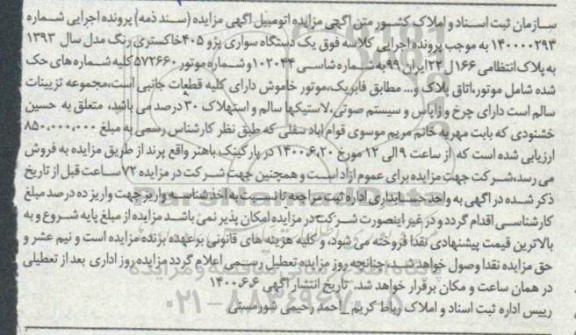 سازمان ثبت اسناد و املاک کشور متن آگهی مزایده اتومبیل آگهی مزایده (سند ذمه) پرونده اجرایی شماره
۱۴۰۰۰۰۲۹۳ به موجب پرونده اجرایی کلاسه فوق یک دستگاه سواری پژو ۴۰۵ خاکستری رنگ مدل سال ۱۳۹۳
به پلاک انتظامی ۱۶۶ل۲۲ ایران ۹۹ به شماره شاسی ۱۰۲۰۴۴ و شماره موتور ۵۷۲۶۶۰ کلیه شماره های حک
شده شامل موتور، اتاق پلاک و... مطابق فابریک، موتور خاموش دارای کلیه قطعات جانبی است، مجموعه تزیینات
سالم است دارای چرخ و زاپاس و سیستم صوتی، لاستیکها سالم و استهلاک ۳۰ درصد می باشد، متعلق به حسین
خشنودی که بابت مهریه خانم مریم موسوی قوام آباد سفلی که طبق نظر کارشناس رسمی به مبلغ ۸۵۰,۰۰۰,۰۰۰
ارزیابی شده است که از ساعت ۹ الی ۱۲ مورخ ۱۴۰۰.۶.۲۰ در پارکینگ باهنر واقع پرند از طریق مزایده به فروش
می رسد، شرکت جهت مزایده برای عموم آزاد است و همچنین جهت شرکت در مزایده ۷۲ ساعت قبل از تاریخ
ذکر شده در آگهی به واحد حسابداری اداره ثبت مراجعه تا نسبت به اخذ شناسه واریز جهت واریز ده درصد مبلغ
کارشناسی اقدام گردد و در غیر اینصورت شرکت در مزایده امکان پذیر نمی باشد مزایده از مبلغ پایه شروع و به
بالاترین قیمت پیشنهادی نقدا فروخته می شود، و کلیه هزینه های قانونی برعهده برنده مزایده است و نیم عشر و
حق مزایده نقدا وصول خواهد شد، چنانچه روز مزایده تعطیل رسمی اعلام گردد مزایده روز اداری بعد از تعطیلی
در همان ساعت و مکان برقرار خواهد شد. تاریخ انتشار آگهی ۱۴۰۰.۶.۶
رییس اداره ثبت اسناد و املاک رباط کریم _ احمد رحیمی شورمستی
ParsNamadData
۰۲۱-۸۸۳۴۹۶۷۰